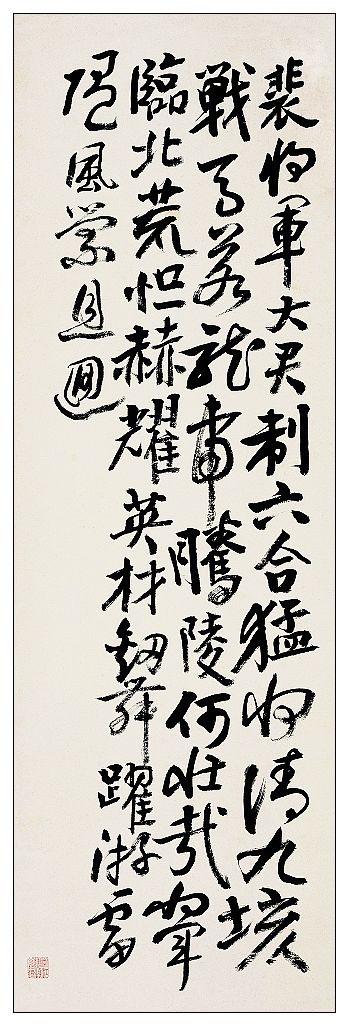 裴將軍大君制六合猛將清九垓
戰馬若龍虎騰陵何壯哉將軍
臨北荒怛赫耀英材劍舞躍游電
隨風縈且迴